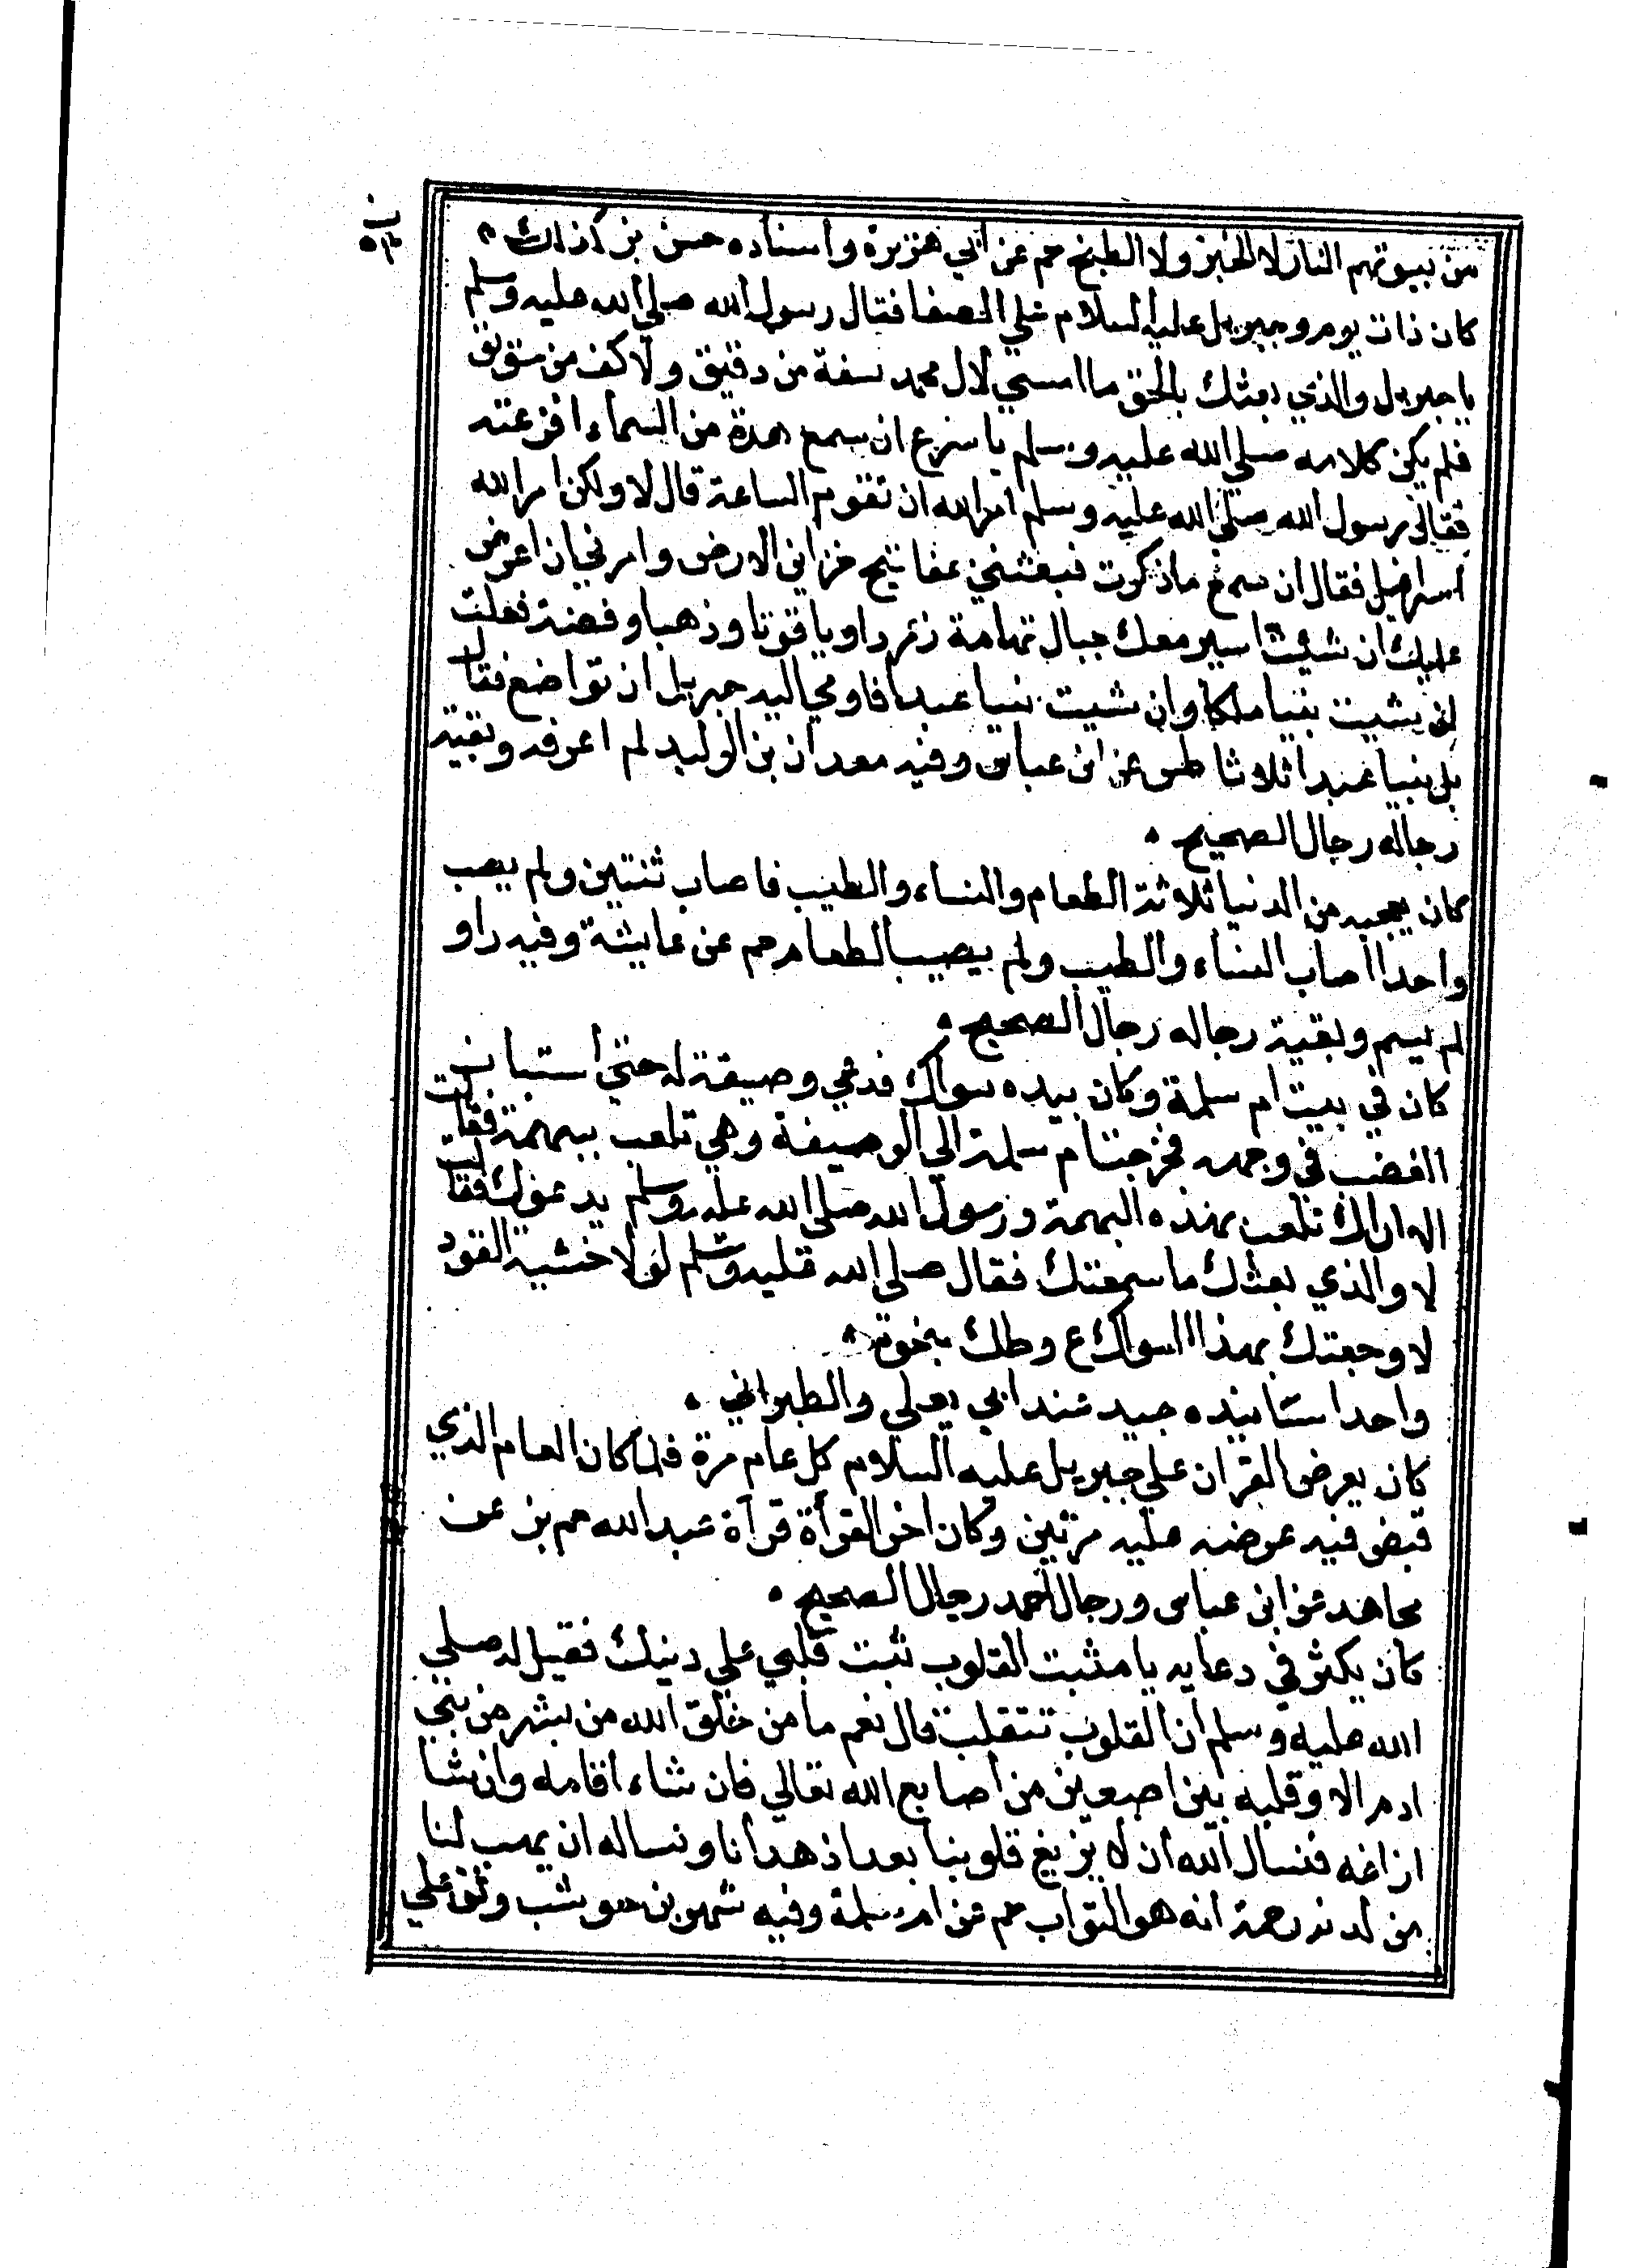 من بيوتهم النار لا لخبز ولا الطبخ حم عن ابي هريرة واسناده حسن بز كذلك
كان ذات يوم وجبريل عليه السلام علي الصفا فقال رسول الله صلي الله عليه وسلم
يا جبريل والذي بعثك بالحق ما امسي لال محمد سفة من دقيق ولا كف من سويق
فلم يكن كلامه صلي الله عليه وسلم باسرع ان سمع هدة من السماء افزعته
فقال رسول الله صلي الله عليه وسلم امر الله ان تقوم الساعة قال لا ولكن امر الله
اسرافيل فقال ان سمع ما ذكرت فبعثني بمفاتيح خزاين الارض وامرني ان اعرض
عليك ان شيت اسير معك جبال تهامة زمردا وياقوتا وذهبا وفضة فعلت
لن شيت نبيا ملكا وان شيت نبيا عبدا فاومي اليه جبريل ان تواضع فقال
بل نبيا عبدا ثلاثا طس عن ابن عباس وفيه معدان بن الوليد لم اعرفه وبقية
رجاله رجال الصحيح
كان يعجبه من الدنيا ثلاثة الطعام والنساء والطيب فاصاب ثنتين ولم يصب
واحدا اصاب النساء والطيب ولم يصيب الطعام حم عن عايشة وفيه راو
لم يسم وبقية رجاله رجال الصحيح
كان في بيت ام سلمة وكان بيده سواك فدعي وصيفة له حتي استبان
الغضب في وجهه فخرجت ام سلمة الي الوصيفة وهي تلعب ببهمة فقالت
الا اراك تلعبن بهذه البهمة ورسول الله صلي الله عليه وسلم يدعوك فقالت
لا والذي بعثك ما سمعتك فقال صلي الله عليه وسلم لولا خشية القود
لاوجعتك بهذا السواك ع وطك بنحوه
واحد اسانيده جيد عند ابي يعلي والطبراني
كان يعرض القران علي جبريل عليه السلام كل عام مرة فلما كان العام الذي
قبض فيه عرضه عليه مرتين وكان اخر القرأة قرأة عبد الله حم بز عن
مجاهد عن ابن عباس ورجال احمد رجال الصحيح
كان يكثر في دعايه يا مثبت القلوب ثبت قلبي علي دينك فقيل له صلي
الله عليه وسلم ان القلوب تتقلب قال نعم ما من خلق الله من بشر من بني
ادم الا وقلبه بين اصبعين من اصابع الله تعالي فان شاء اقامه وان شا
ازاغه فنسال الله ان لا يزيغ قلوبنا بعد اذ هدانا ونساله ان يهب لنا
من لدنه رحمة انه هو التواب حم عن ام سلمة وفيه شهر بن حوشب وثق علي